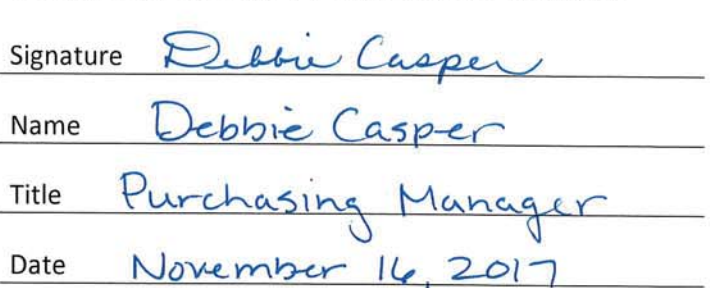 Signature Debbie Casper
Name Debbie Casper
Title Purchasing Manager
Date November 16, 2017